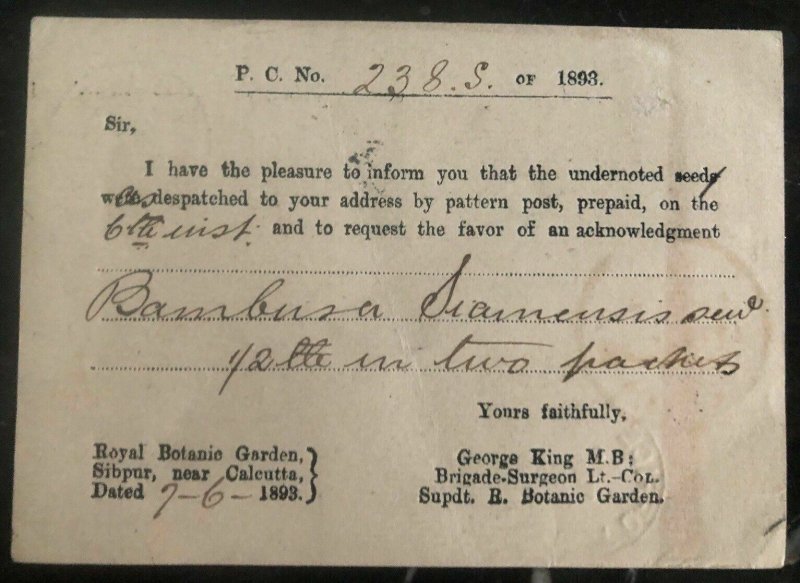 P. C. No. 238. S. OF 1893.
Sir,
I have the pleasure to inform you that the undernoted seed
was despatched to your address by pattern post, prepaid, on the
6th inst. and to request the favor of an acknowledgment
Bambusa Siamensis seed
1/2 lb in two packets
Yours faithfully,
Royal Botanic Garden,
Sibpur, near Calcutta,
Dated 7-6-1893.
George King M.B:
Brigade-Surgeon Lt.-Col.
Supdt. R. Botanic Garden.